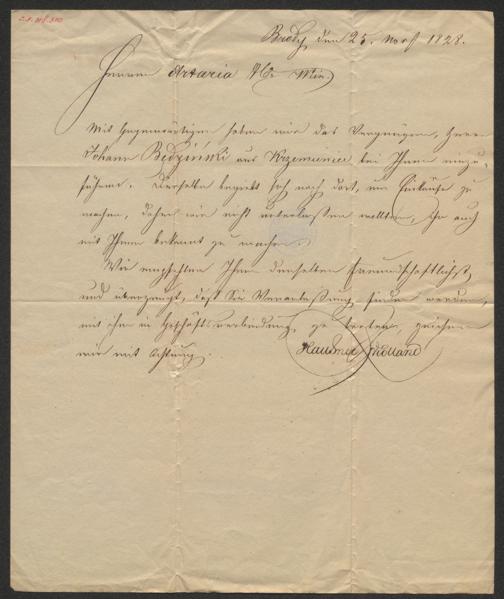 Brody, den 25. Nov. 1828.
Herren Artaria & Co. Wien
Mit Gegenwärtigem haben wir das Vergnügen, Herrn
Johann Będziński aus Krzemieniec bei Ihnen einzu-
führen. Derselbe begiebt sich nach dort, um Einkäufe zu
machen, daher wir nicht unterlassen wollten, ihn auch
mit Ihnen bekannt zu machen.
Wir empfehlen Ihnen denselben freundschaftlichst
und überzeugt, daß Sie Veranlassung finden werden,
mit ihm in Geschäftsverbindung zu treten, zeichnen
wir mit Achtung.
Hausner & Violland